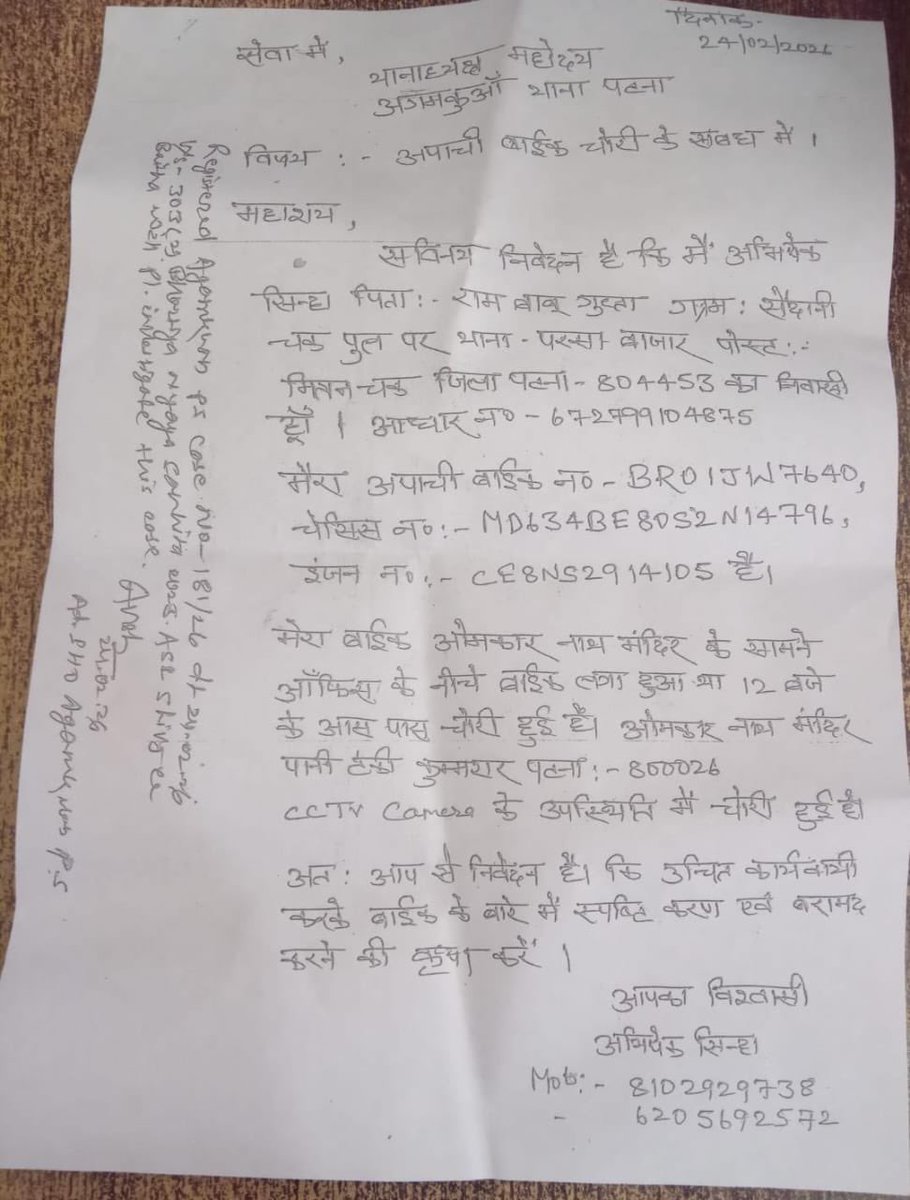 दिनांक-
24/02/2026
सेवा में,
थानाध्यक्ष महोदय
अगमकुआँ थाना पटना
विषय :- अपाची बाईक चोरी के संबंध में ।
महाशय,
सविनय निवेदन है कि मैं अभिषेक
सिन्हा पिता :- राम बाबू गुप्ता ग्राम : सैदानी
चक पुल पर थाना - परसा बाजार पोस्ट :-
मितन चक जिला पटना - 804453 का निवासी
हूँ । आधार न० - 672799104875
मेरा अपाची बाईक न० - BR01JW7640,
चेसिस न० :- MD634BE80S2N14796,
इंजन न० :- CE8NS2914105 है।
मेरा बाईक ओमकार नाथ मंदिर के सामने
ऑफिस के नीचे बाईक लगा हुआ था 12 बजे
के आस पास चोरी हुई है। ओमकार नाथ मंदिर
पानी टंकी कुम्मरार पटना :- 800026
CCTV Camera के उपस्थिति में चोरी हुई है।
अत : आप से निवेदन है। कि उचित कार्यवायी
करके बाईक के बारे में स्पष्टि करण एवं बरामद
करने की कृपा करें ।
आपका विश्वासी
अभिषेक सिन्हा
Mob :- 8102929738
- 6205692572
Registered Agamkuan PS case No- 181/26 dt 24.02.26
U/s- 303(2) Bharatiya nyaya sanhita 2023. ASI
Pl. investigate this case.
24.02.26
Agamkuan P.S